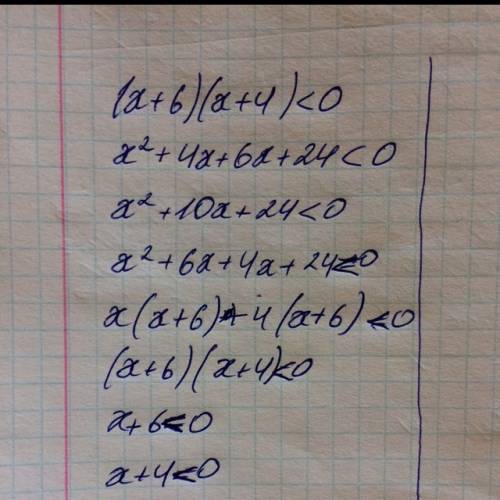 (x+6)(x+4)<0
x²+4x+6x+24<0
x²+10x+24<0
x²+6x+4x+24<0
x(x+6)+4(x+6)<0
(x+6)(x+4)<0
x+6<0
x+4<0